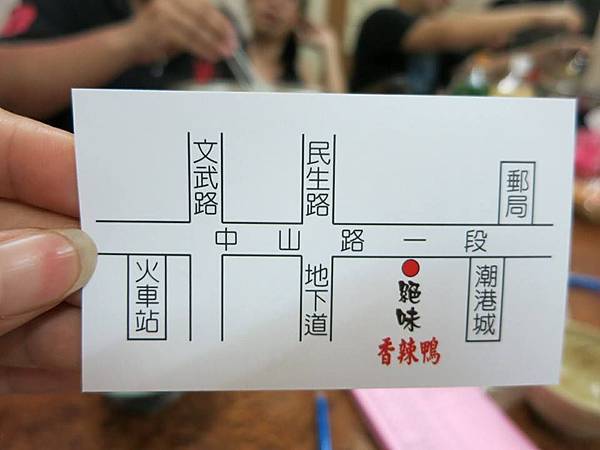 文武路
民生路
郵局
中山路一段
火車站
地下道
絕味
香辣鴨
潮港城